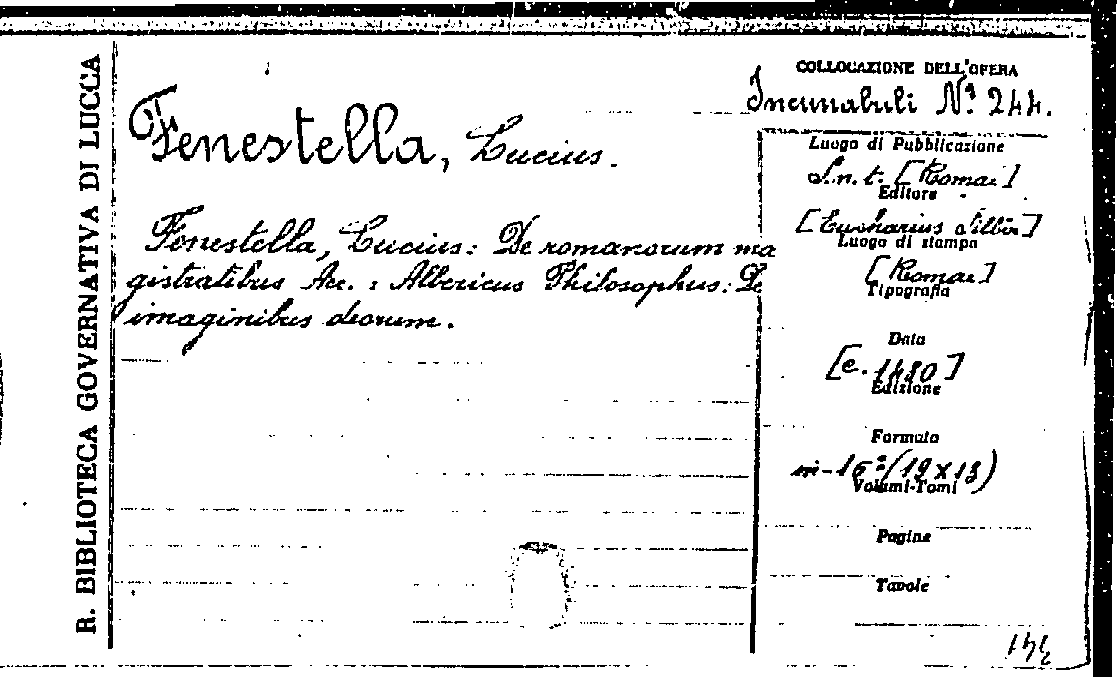 R. BIBLIOTECA GOVERNATIVA DI LUCCA
Fenestella, Lucius.
Fenestella, Lucius: De romanorum ma
gistratibus Acc. : Albericus Philosophus: De
imaginibus deorum.
COLLOCAZIONE DELL'OPERA
Incunabuli Nº 244.
Luogo di Pubblicazione
S. n. t. [Romae]
Editore
[Eucharius Silber]
Luogo di stampa
[Romae]
Tipografia
Data
[c. 1480]
Edizione
Formato
in-16º (19 X 13)
Volumi-Tomi
Pagine
Tavole